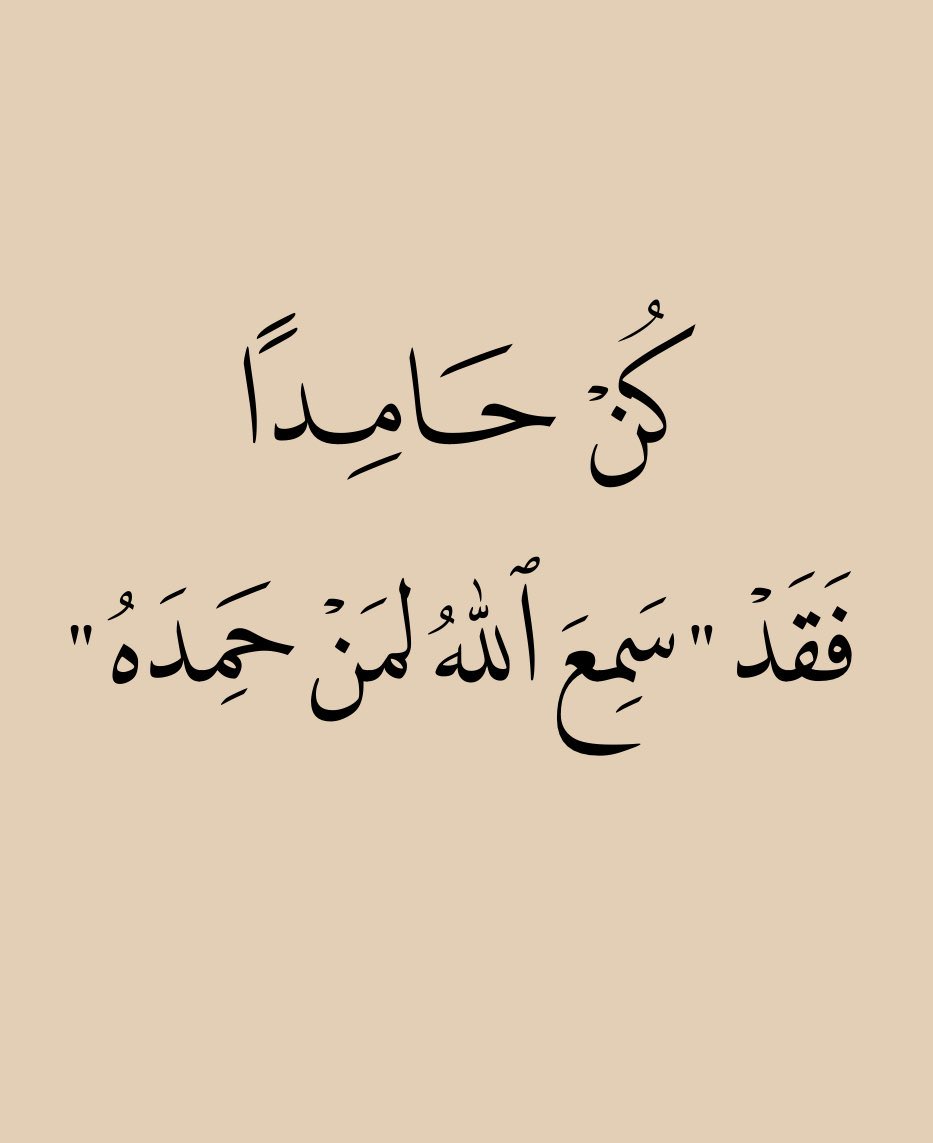 كُنْ حَامِداً
فَقَدْ "سَمِعَ ٱللهُ لمَنْ حَمِدَهُ"